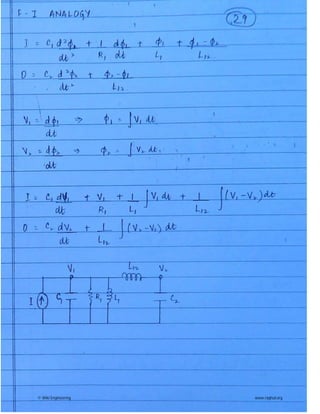 F - I ANALOGY
29
I = C₁ d²ϕ₁/dt² + 1/R₁ dϕ₁/dt + ϕ₁/L₁ + ϕ₁ - ϕ₂/L₁₂
0 = C₂ d²ϕ₂/dt² + ϕ₂ - ϕ₁/L₁₂
V₁ = dϕ₁/dt ⇒ ϕ₁ = ∫V₁ dt
V₂ = dϕ₂/dt ⇒ ϕ₂ = ∫V₂ dt.
I = C₁ dV₁/dt + V₁/R₁ + 1/L₁ ∫V₁ dt + 1/L₁₂ ∫(V₁ - V₂) dt
0 = C₂ dV₂/dt + 1/L₁₂ ∫(V₂ - V₁) dt
V₁ L₁₂ V₂
I C₁ R₁ L₁ C₂
www.raghul.org